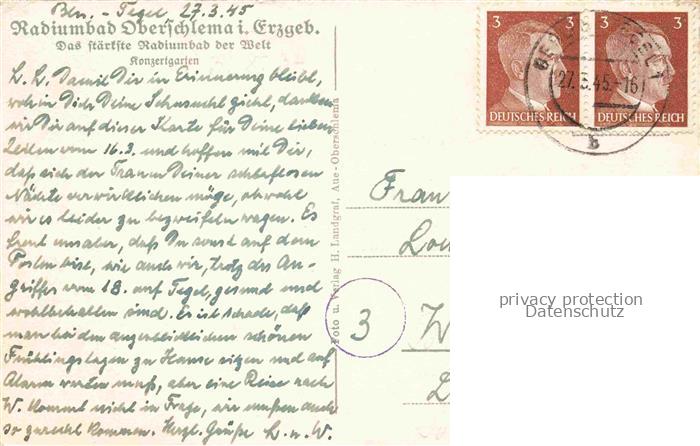 Bln.-Tegel 27.3.45
Radiumbad Oberschlema i. Erzgeb.
Das stärkste Radiumbad der Welt
Konzertgarten
L. L. Damit Dir in Erinnerung bleibt,
wohin Dich Deine Sehnsucht zieht, danken
wir Dir auf dieser Karte für Deine lieben
Zeilen vom 16.3. und hoffen mit Dir,
daß sich der Traum Deiner schlaflosen
Nächte verwirklichen möge, obwohl
wir es leider zu bezweifeln wagen. Es
freut uns aber, daß Du sonst auf dem
Posten bist, wie auch wir, trotz des An-
griffes vom 18. auf Tegel, gesund und
wohlbehalten sind. Es ist schade, daß
man bei den augenblicklichen schönen
Frühlingstagen zu Hause sitzen und auf
Alarm warten muß, aber eine Reise nach
W. kommt nicht in Frage, wir müßen auch
so zurecht kommen. Herzl. Grüße L. u. W.
Foto u. Verlag H. Landgraf, Aue-Oberschlema
3
3
DEUTSCHES REICH
DEUTSCHES REICH
27.3.45.-16
b
Frau
3
W
privacy protection
Datenschutz